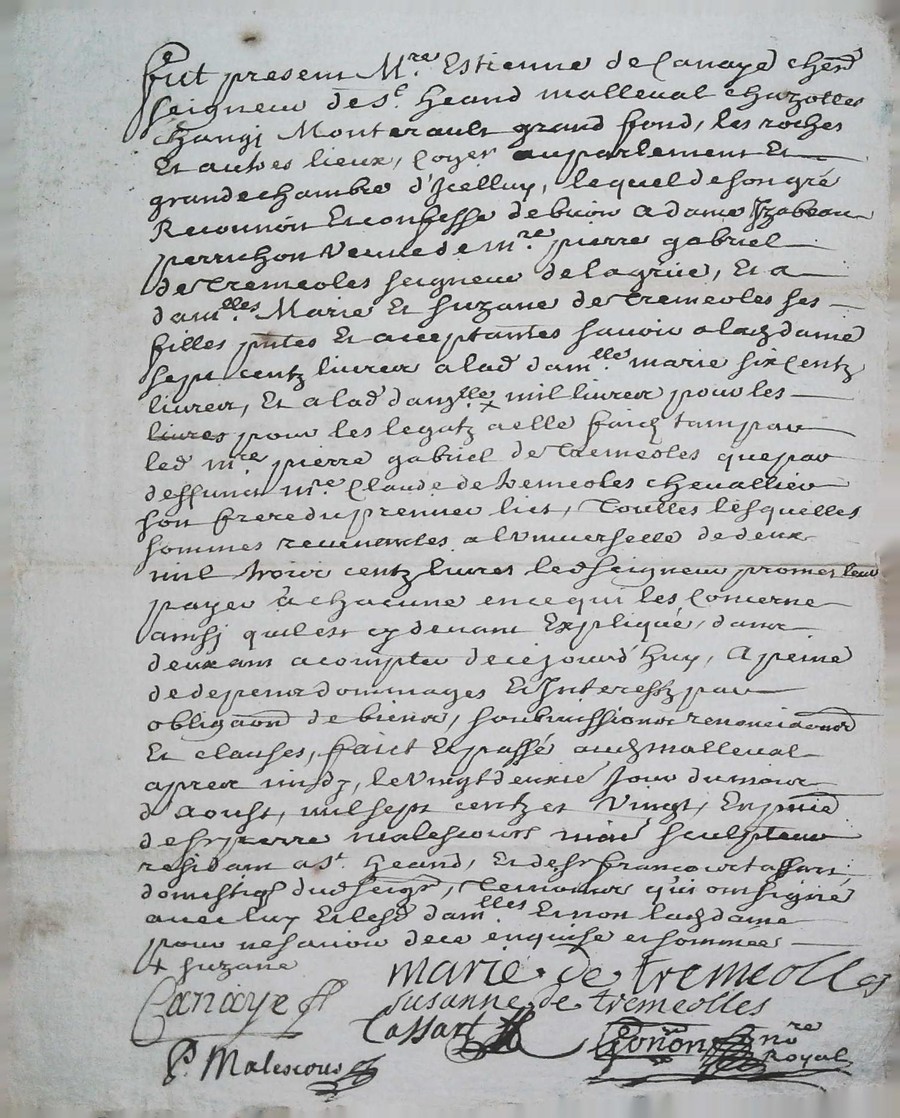 fut present Mre Estienne de Canaye cher
seigneur de st heand malleval chazottes
changi Monterault grand fond, les roches
Et autres lieux, Coner au parlement Et
grande chambre d'Icelluy, lequel de son gré
Reconnoit Et confesse debvoir a dame Izabeau
perrichon Veuve de mre pierre gabriel
de tremeoles seigneur de la grüe, Et a
damlles Marie Et suzane de tremeoles ses
filles pntes Et acceptantes savoir a lad dame
sept centz livres a lad damlle marie six centz
livres, Et a lad damlle + mil livres pour les
livres pour les legatz a elle faictz tam par
led mre pierre gabriel de tremeoles que par
deffunct mre Claude de tremeoles chevallier
son frere du premier lict, touttes lesquelles
sommes revenantes a l'universelle de deux
mil trois centz livres led seigneur promet leur
payer a chacune en ce qui les concerne
ainsi quil est cy devant Expliqué, dans
deux ans a compter de cejourd'huy, A peine
de depens dommages Et Interestz par
obligaon de biens, soubmissions renonciaons
Et clauses, faict Et passé aud malleval
apres midy, le vingt deuxie jour du mois
d'aoust, mil sept centz et vingt, En pnce
de sr pierre malescours sculpteur
residam a st heand, Et de sr francois tassart,
domestiq dud seigr, temoins qui ont signé
avec luy Et lesd damlles Et non lad dame
pour ne savoir de ce enquise et sommée
+ suzane
marie de tremeolles
Canaye
susanne de tremeolles
tassart
P. Malescours
Gonon nre
Royal